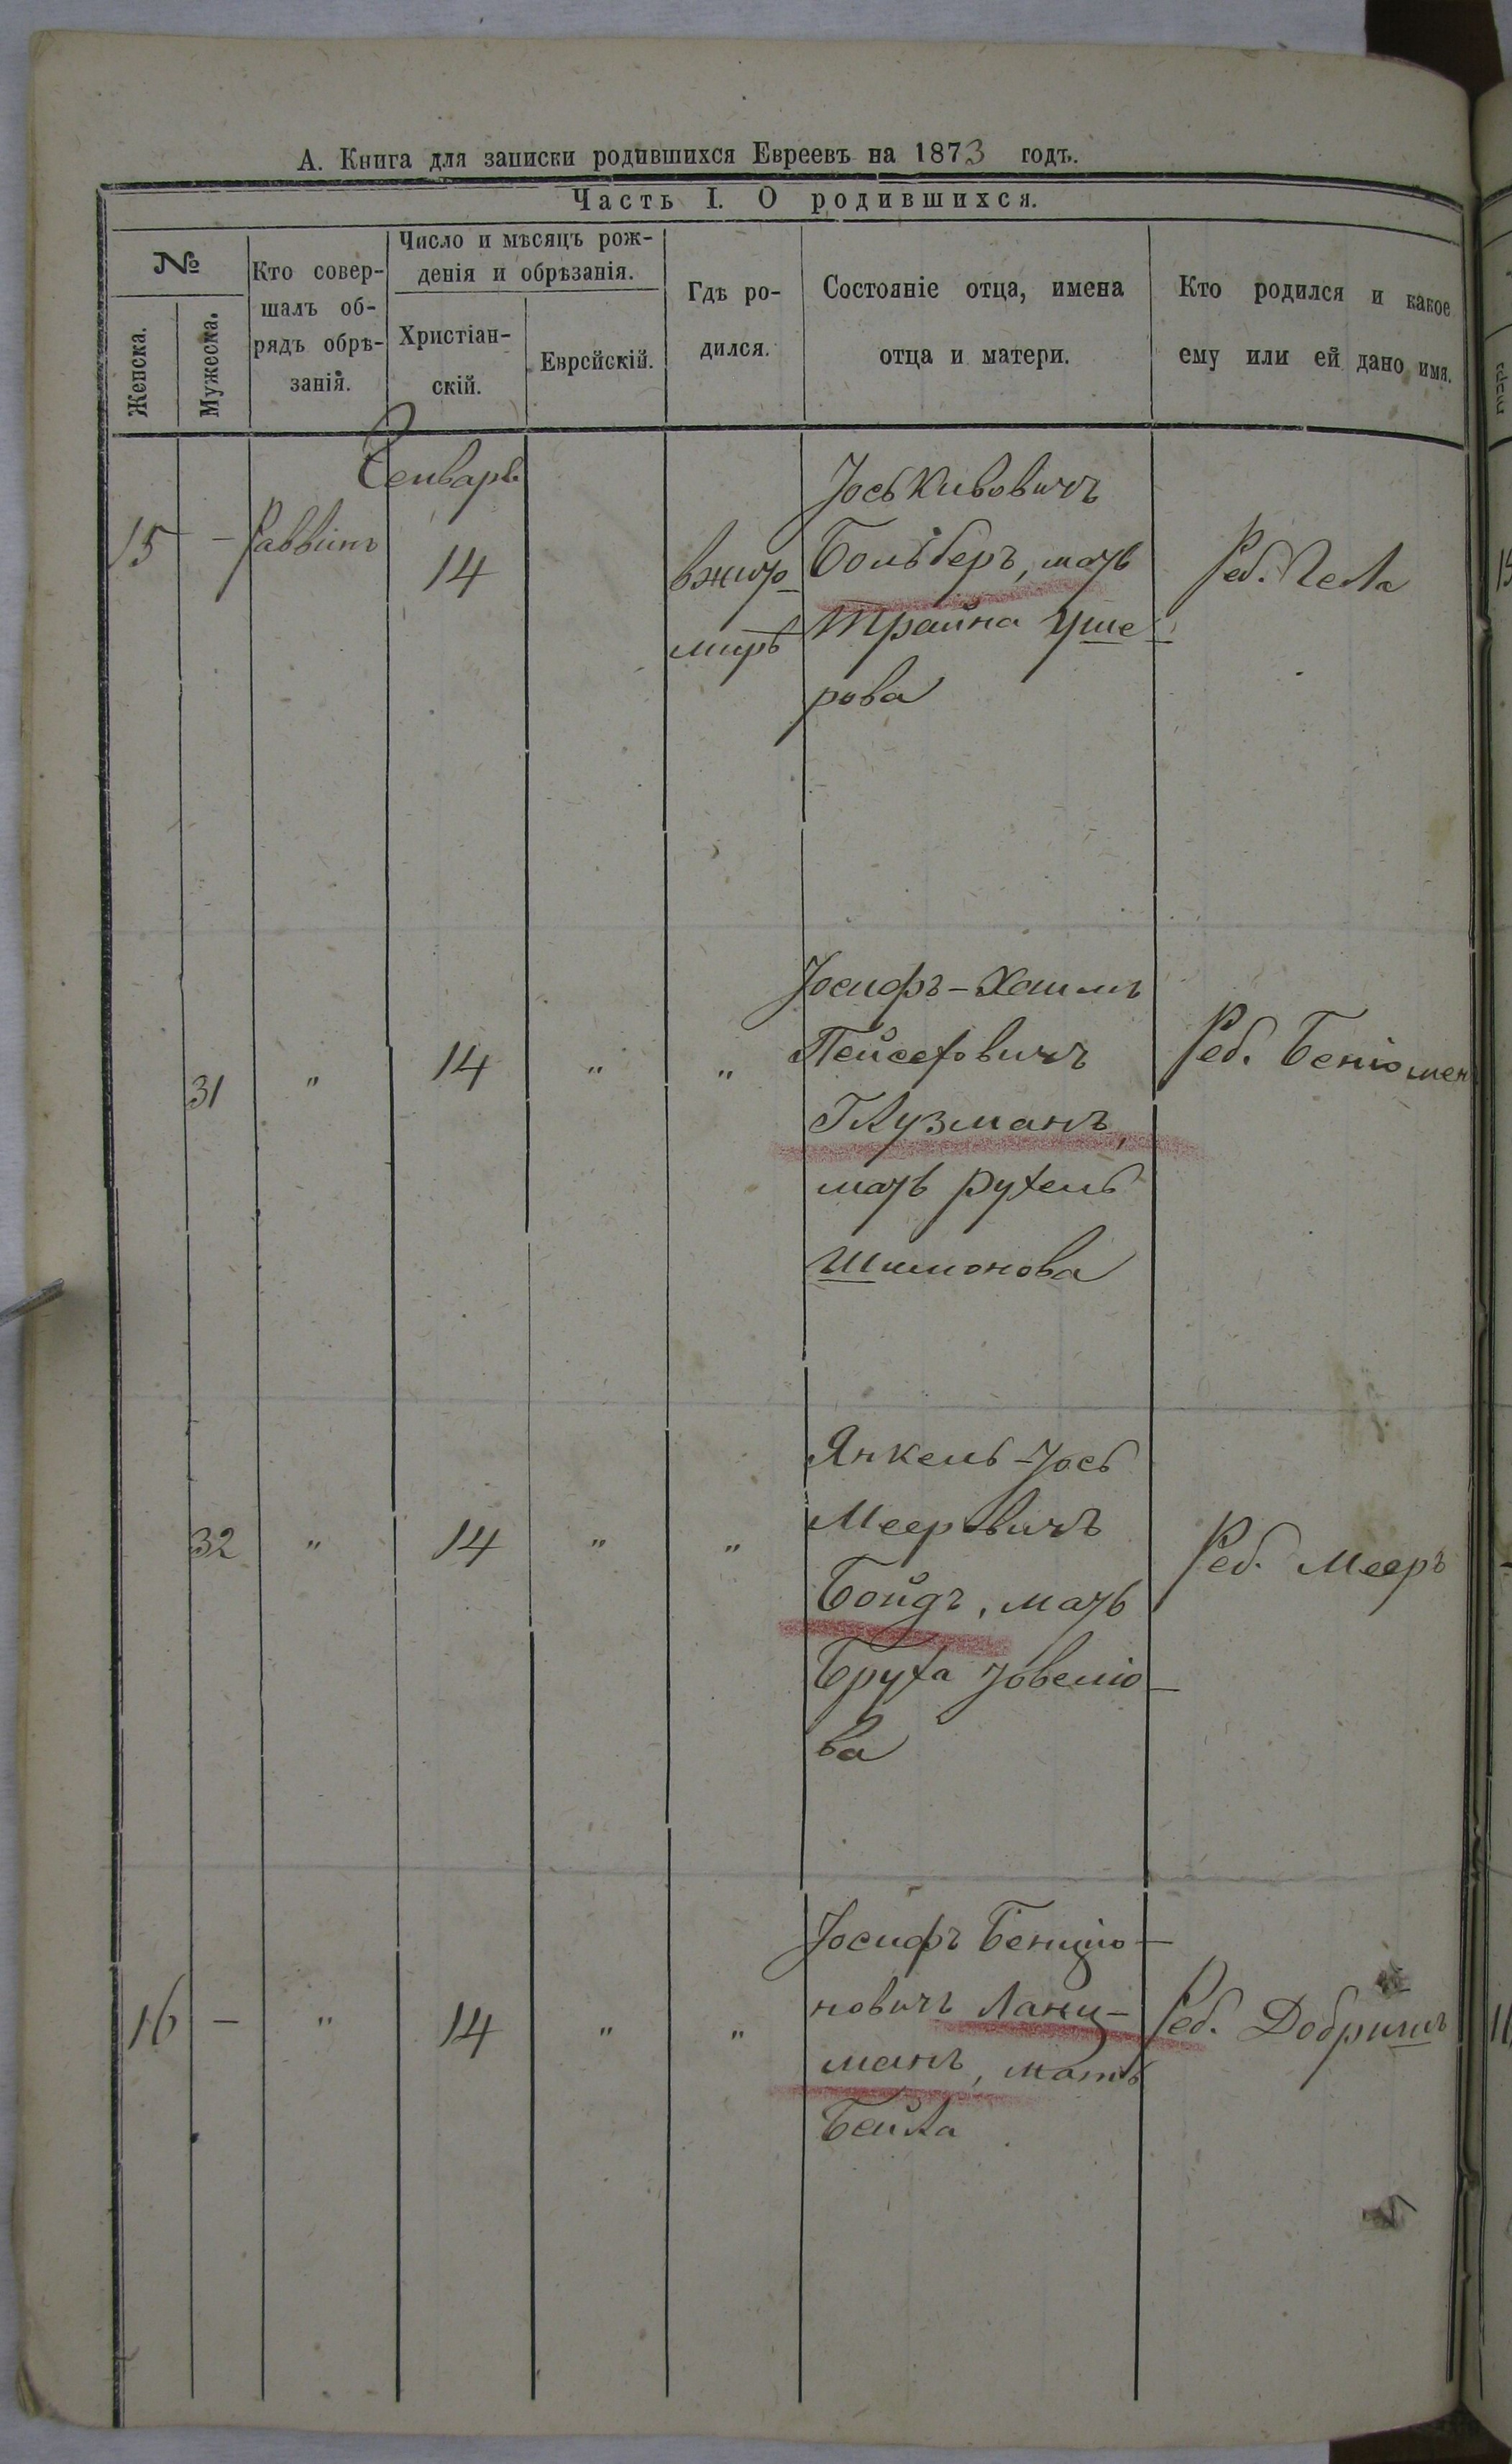 А. Книга для записки родившихся Евреевъ на 1873 годъ.
Часть I. О родившихся.
№
Женска.
Мужеска.
Кто совер-
шалъ об-
рядъ обрѣ-
занія.
Число и мѣсяцъ рож-
денія и обрѣзанія.
Христіан-
скій.
Еврейскій.
Гдѣ ро-
дился.
Состояніе отца, имена
отца и матери.
Кто родился и какое
ему или ей дано имя.
Генварь
15 — Раввинъ 14
вжито-
мирѣ
Іось Кивовичъ
мать
Трайна Уше-
рова
Реб.
31 " 14 " "
Іосифъ-Хаимъ
Пейсеховичъ
Глузманъ,
мать Рухель
Шимонова
Реб. Беніомен
32 " 14 " "
Янкель-Іось
Мееровичъ
Бойдъ, мать
Бруха Іовелю-
ва
Реб. Мееръ
16 — " 14 " "
Іосифъ Бенціо-
новичъ Ланц-
манъ, мать
Бейла
Реб. Добришъ